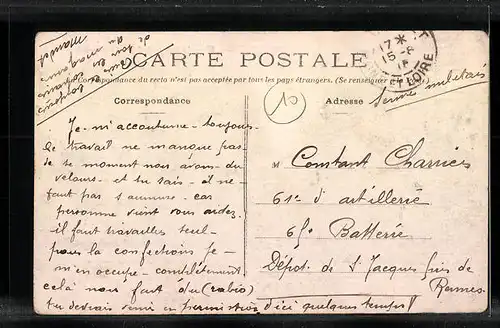 CARTE POSTALE
La Correspondance du recto n'est pas acceptée par tous les pays étrangers. (Se renseigner
Correspondance
Adresse
17 *
15-8
ET LOIRE
Service militaire
10
Je m'accoutume toujours
le travail ne manque pas
de se moment nous avons du
velours et tu sais il ne
faut pas s'amuser car
personne vient vous aidez
il faut travailler seul
pour la confections je
m'en occupe complètement
celà nous fait du (rabio)
tu devrais venir en permission d'ici quelques temps
M Constant Charrier
61e d'artillerie
65e Batterie
Dépot de St Jacques près de
Rennes